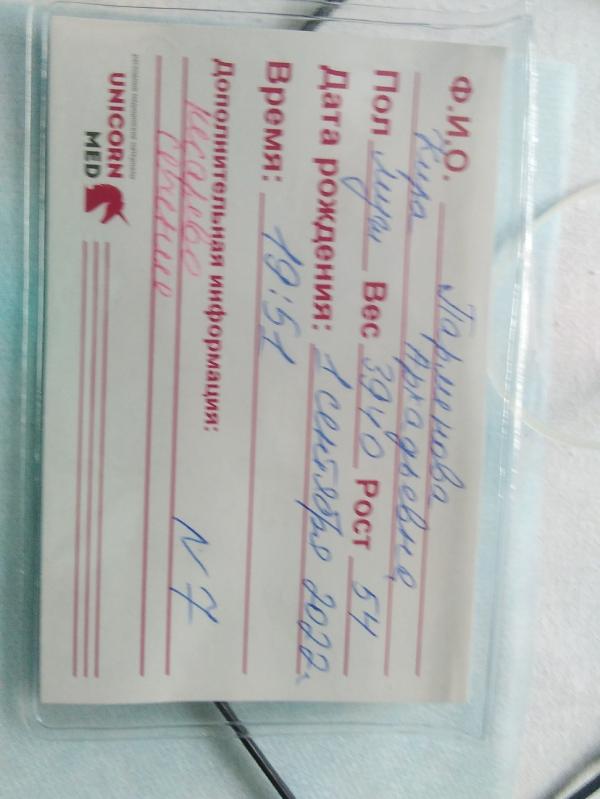 Ф.И.О. Парменова
Кира Аркадьевна
Пол Муж Вес 3940 Рост 54
Дата рождения: 1 сентября 2022г.
Время: 19:51
Дополнительная информация:
Кесарево N 7
Сечение
UNICORN
MED